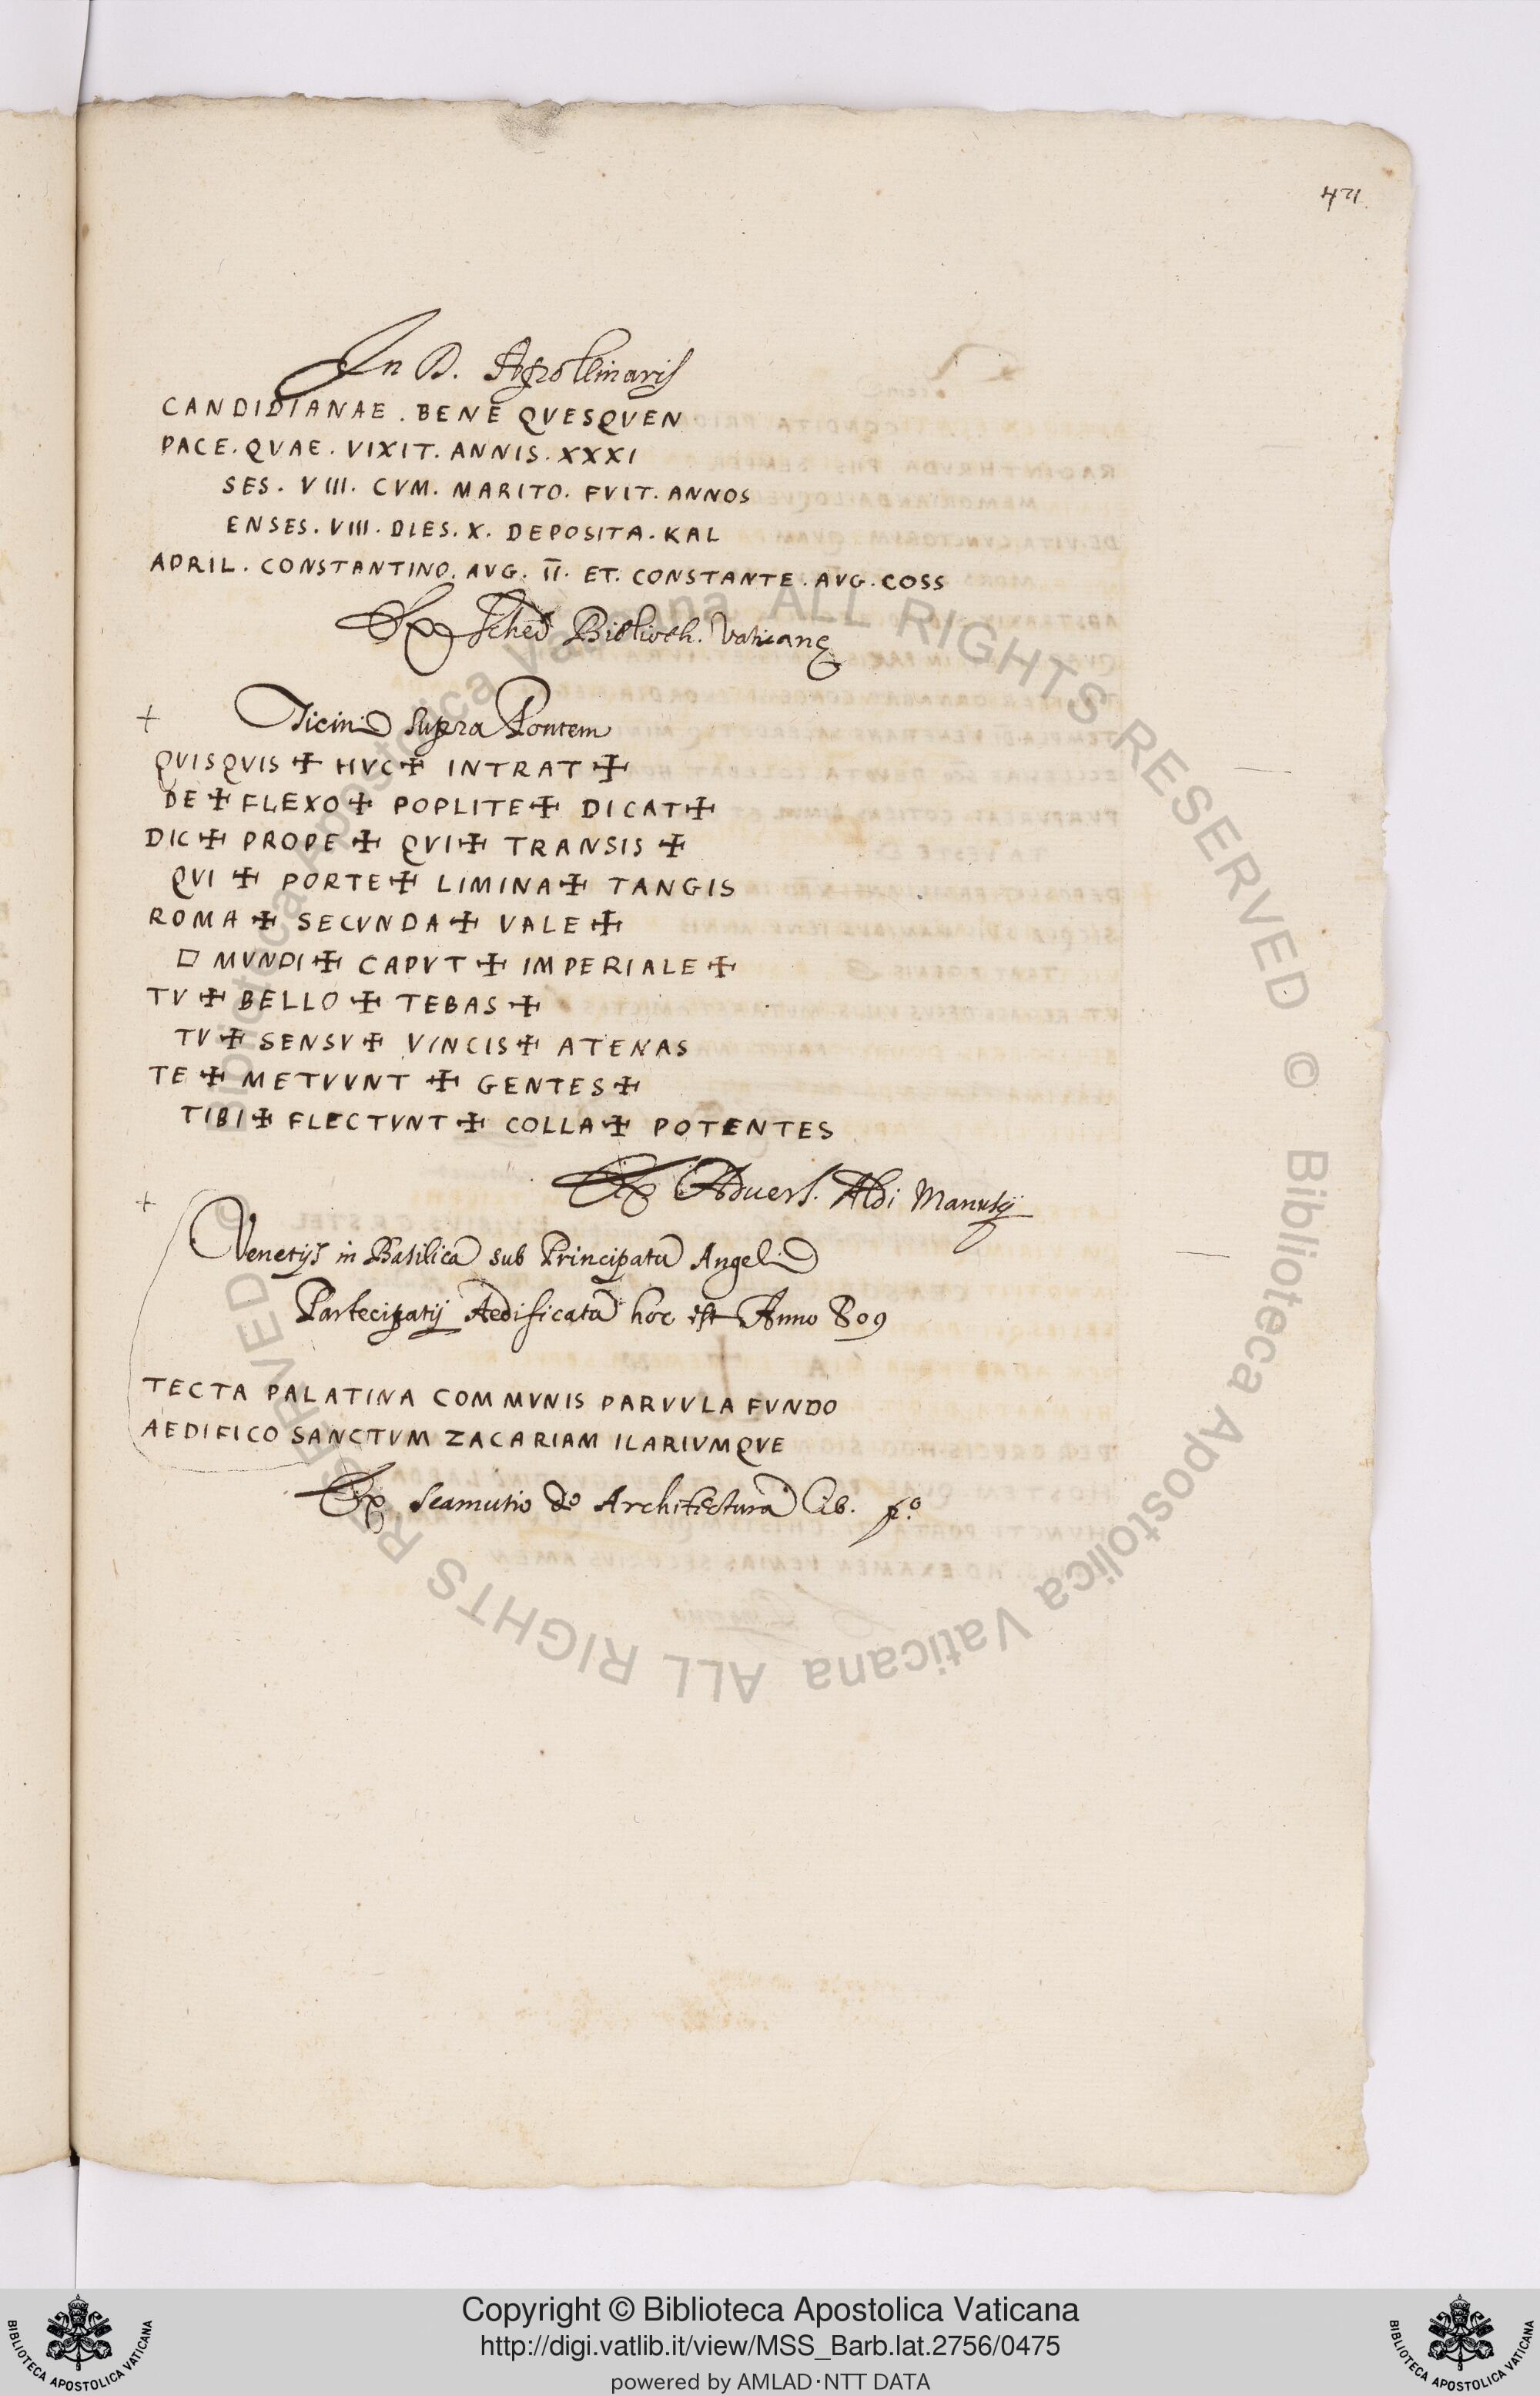 471
In D. Apollinaris
CANDIDIANAE . BENE QVESQVEN
PACE . QVAE . VIXIT . ANNIS . XXXI
SES . VIII . CVM . MARITO . FVIT . ANNOS
ENSES . VIII . DIES . X . DEPOSITA . KAL
APRIL . CONSTANTINO . AVG . II . ET . CONSTANTE . AVG . COSS
Ex Sched Biblioth. Vaticanę
+ Ticini supra Pontem
QVISQVIS ✠ HVC ✠ INTRAT ✠
DE ✠ FLEXO ✠ POPLITE ✠ DICAT ✠
DIC ✠ PROPE ✠ QVI ✠ TRANSIS ✠
QVI ✠ PORTE ✠ LIMINA ✠ TANGIS
ROMA ✠ SECVNDA ✠ VALE ✠
□ MVNDI ✠ CAPVT ✠ IMPERIALE ✠
TV ✠ BELLO ✠ TEBAS ✠
TV ✠ SENSV ✠ VINCIS ✠ ATENAS
TE ✠ METVVNT ✠ GENTES ✠
TIBI ✠ FLECTVNT ✠ COLLA ✠ POTENTES
Ex Advers. Aldi Manutij
+ Venetijs in Basilica sub Principatu Angeli
Partecipatij Aedificata hoc est Anno 809
TECTA PALATINA COMMVNIS PARVVLA FVNDO
AEDIFICO SANCTVM ZACARIAM ILARIVMQVE
Ex Scamutio de Architectura Lib. p.º
© Biblioteca Apostolica Vaticana ALL RIGHTS RESERVED © Biblioteca Apostolica Vaticana ALL RIGHTS RESERVED
Copyright © Biblioteca Apostolica Vaticana
http://digi.vatlib.it/view/MSS_Barb.lat.2756/0475
powered by AMLAD·NTT DATA
BIBLIOTECA APOSTOLICA VATICANA
BIBLIOTECA APOSTOLICA VATICANA